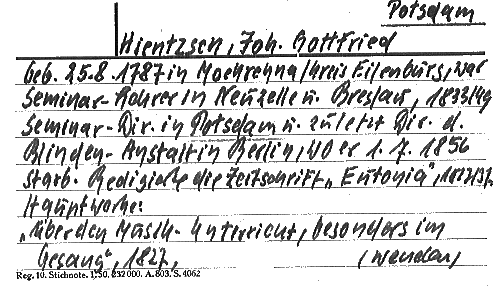 Potsdam
Hientzsch, Joh. Gottfried
geb. 25.8.1787 in Mockrehna/Kreis Eilenburg, war
Seminar-Lehrer in Neuzelle u. Breslau, 1833/49
Seminar-Dir. in Potsdam u. zuletzt Dir. d.
Blinden-Anstalt in Berlin, wo er 1.7.1856
starb. Redigierte die Zeitschrift „Eutonia",
Hauptwerke:
„Über den Musik-Unterricht, besonders im
Gesang", 1827, (wenden)
Reg. 10. Stichnote. 1,50. 232 000. A. 803. S. 4062